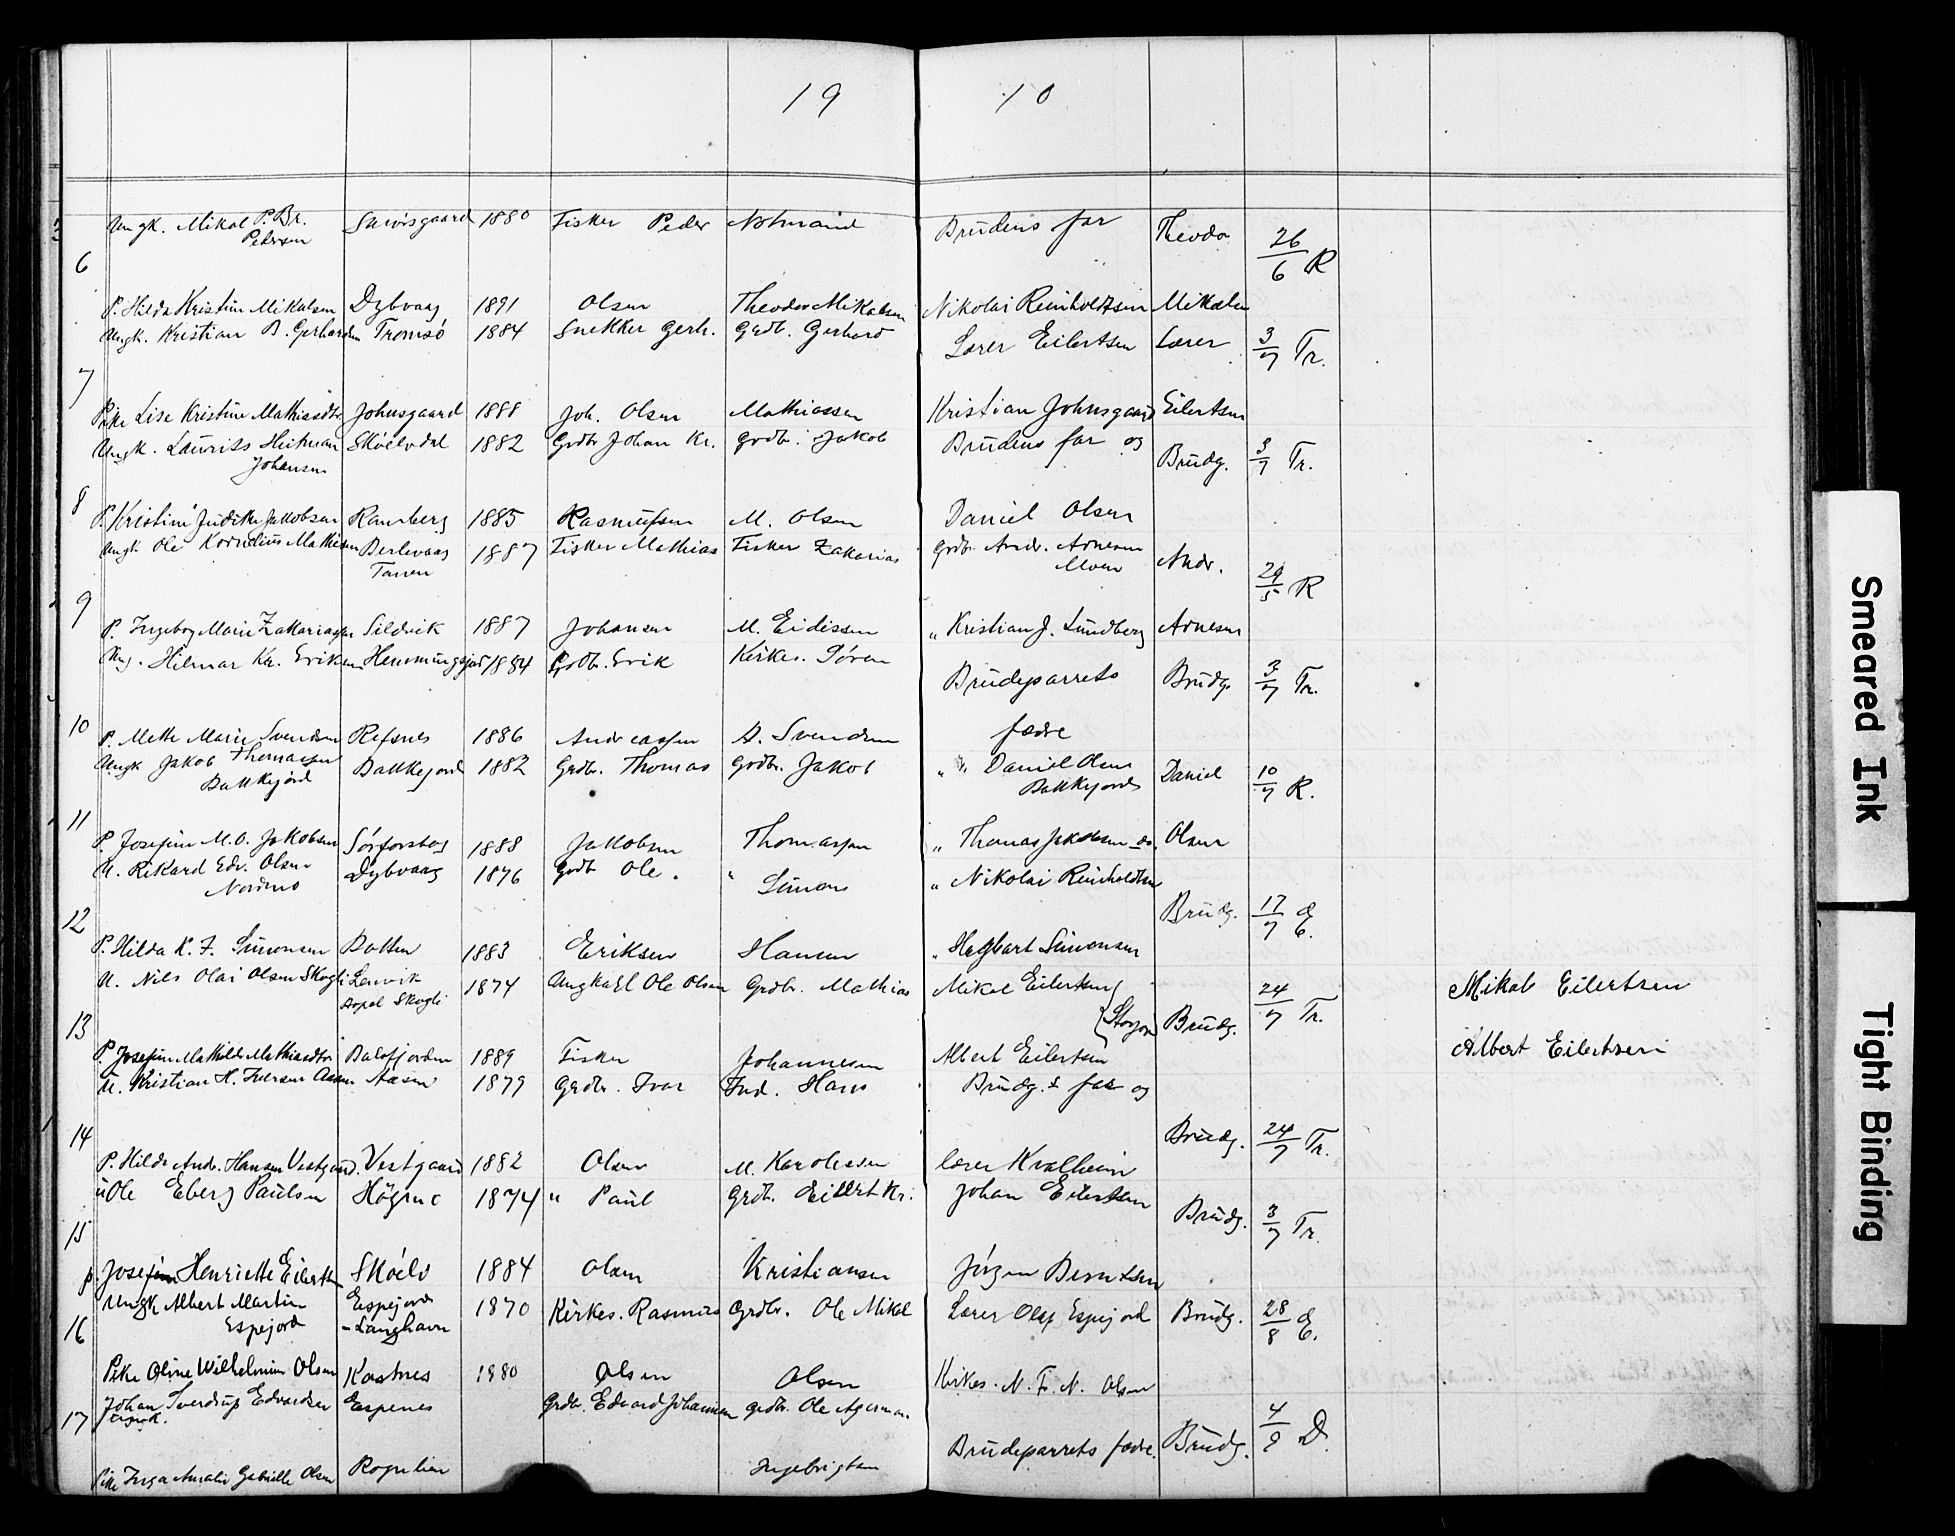 19 10
Ungk. Mikal P. Br. Snoisgaard 1880 Fisker Peder Notmand Brudens far Theodo 26/6 R
Petersen
6
P. Hilda Kristine Mikalsen Dybvaag 1891 Olsen Theodor Mikalsen Nikolai Reinholdtsen Mikalsen
Ungk. Kristian B. Gerhardsen Tromsö 1884 Snekker Gerh. Grdb. Gerhard Lærer Eilertsen Lærer 3/7 Tr.
7
Pike Lise Kristine Mathisdtr. Johnsgaard 1888 Joh. Olsen Mathiassen Kristian Johnsgaard Eilertsen
Ungk. Laurits Heitman Skoelvdal 1882 Grdbr Johan Kr. Grdbr. Jakob Brudens far og Brudg. 3/7 Tr.
Johansen
8
P. Kristine Judithe Jakobsen Ramberg 1885 Rasmussen M. Olsen Daniel Olsen
Ungk Ole Kornelius Mathisen Berlevaag 1887 Fisker Mathias Fisker Zakarias Grdb. Andr. Arnesen Andr. 29/5 R
Tanen Moen
9
P. Ingeborg Marie Zakariassen Sildvik 1887 Johansen M. Eidissen " Kristian J. Lundberg Arnesen
Ung. Hilmar Kr. Eriksen Hemmingsjord 1884 Grdb. Erik Kirkes. Sören Brudeparrets Brudg. 3/7 Tr.
10
P. Mette Marie Svendsen Refsnes 1886 Andreassen A. Svendsen fædre
Ungk Jakob Thomassen Balkkejord 1882 Grdb. Thomas Grdbr. Jakob " Daniel Olsen Daniel 10/7 R.
Bakkejord Bakkejord
11
P. Josefine M.O. Jakobsen Sörforsbog 1888 Jakobsen Thomassen " Thomas Jakobsen do. Olsen
U. Rikard Edv. Olsen Dybvaag 1876 Grdb Ole. " Simon " Nikolai Reinholdtsen Brudg. 17/7 E.
Nordmo
12
P. Hilda K. F. Simonsen Botten 1883 Eriksen Hansen " Hagbart Simonsen
U. Nils Olai Olsen Skogli Lenvik 1874 Ungkarl Ole Olsen Grdbr. Mathias Mikal Eilertsen 24/7 Tr. Mikal Eilertsen
Aspel Skogli
13 Brudg.
P. Josefine Mathilde Mathisdtr Balsfjorden 1889 Fisker Johannesen Albert Eilertsen Albert Eilertsen
U. Kristian H. Iversen Aasen Aasen 1879 Grdbr. Ivar Ind. Hans Brudg.s far og
14 Brudg. 24/7 Tr.
P. Hilda Andr. Hansen Vestgaard. Vestgaard 1882 Olsen M. Karolussen lærer Kvalheim
U Ole Eberg Paulsen Högmo 1874 " Paul Grdb. Eilert Kr. Johan Eilertsen Brudg. 3/7 Tr.
15
P. Josefine Henriette Eilertsen Skoelv 1884 Olsen Kristiansen Jörgen Berntsen
Ungk Albert Martin Espejord 1870 Kirkes. Rasmus Grdbr. Ole Mikal Lærer Olaf Espejord Brudg. 28/8 E.
16 Espejord - Langhavn
Pike Oline Wilhelmine Olsen Kastnes 1880 Olsen Olsen Kirkes. N. F. N. Olsen
Johan Sverdrup Edvardsen Espenes Grdbr. Edvard Johannesen Grdbr. Ole Agerman
17 Ungk. Brudeparrets fædre. Brudg. 4/9 D.
Pike Inga Amalie Gabrielle Olsen Rognlien Ingebrigtsen
Smeared Ink
Tight Binding